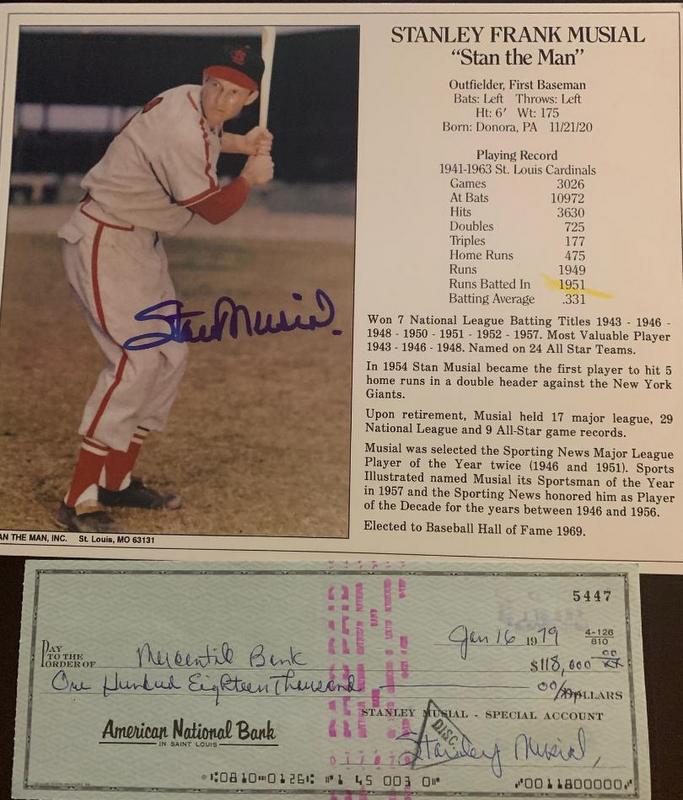 STANLEY FRANK MUSIAL
“Stan the Man”
Outfielder, First Baseman
Bats: Left Throws: Left
Ht: 6' Wt: 175
Born: Donora, PA 11/21/20
Playing Record
1941-1963 St. Louis Cardinals
Games 3026
At Bats 10972
Hits 3630
Doubles 725
Triples 177
Home Runs 475
Runs 1949
Runs Batted In 1951
Batting Average .331
Won 7 National League Batting Titles 1943 - 1946 -
1948 - 1950 - 1951 - 1952 - 1957. Most Valuable Player
1943 - 1946 - 1948. Named on 24 All Star Teams.
In 1954 Stan Musial became the first player to hit 5
home runs in a double header against the New York
Giants.
Upon retirement, Musial held 17 major league, 29
National League and 9 All-Star game records.
Musial was selected the Sporting News Major League
Player of the Year twice (1946 and 1951). Sports
Illustrated named Musial its Sportsman of the Year
in 1957 and the Sporting News honored him as Player
of the Decade for the years between 1946 and 1956.
Elected to Baseball Hall of Fame 1969.
Stan Musial.
AN THE MAN, INC. St. Louis, MO 63131
5447
Jan 16 1979 4-126
810
PAY
TO THE
ORDER OF Mercantile Bank $118,000 00
One Hundred Eighteen Thousand 00/ DOLLARS
STANLEY MUSIAL - SPECIAL ACCOUNT
American National Bank
IN SAINT LOUIS
DISC.
Stanley Musial,
0810 0126 1 45 003 0 0011800000